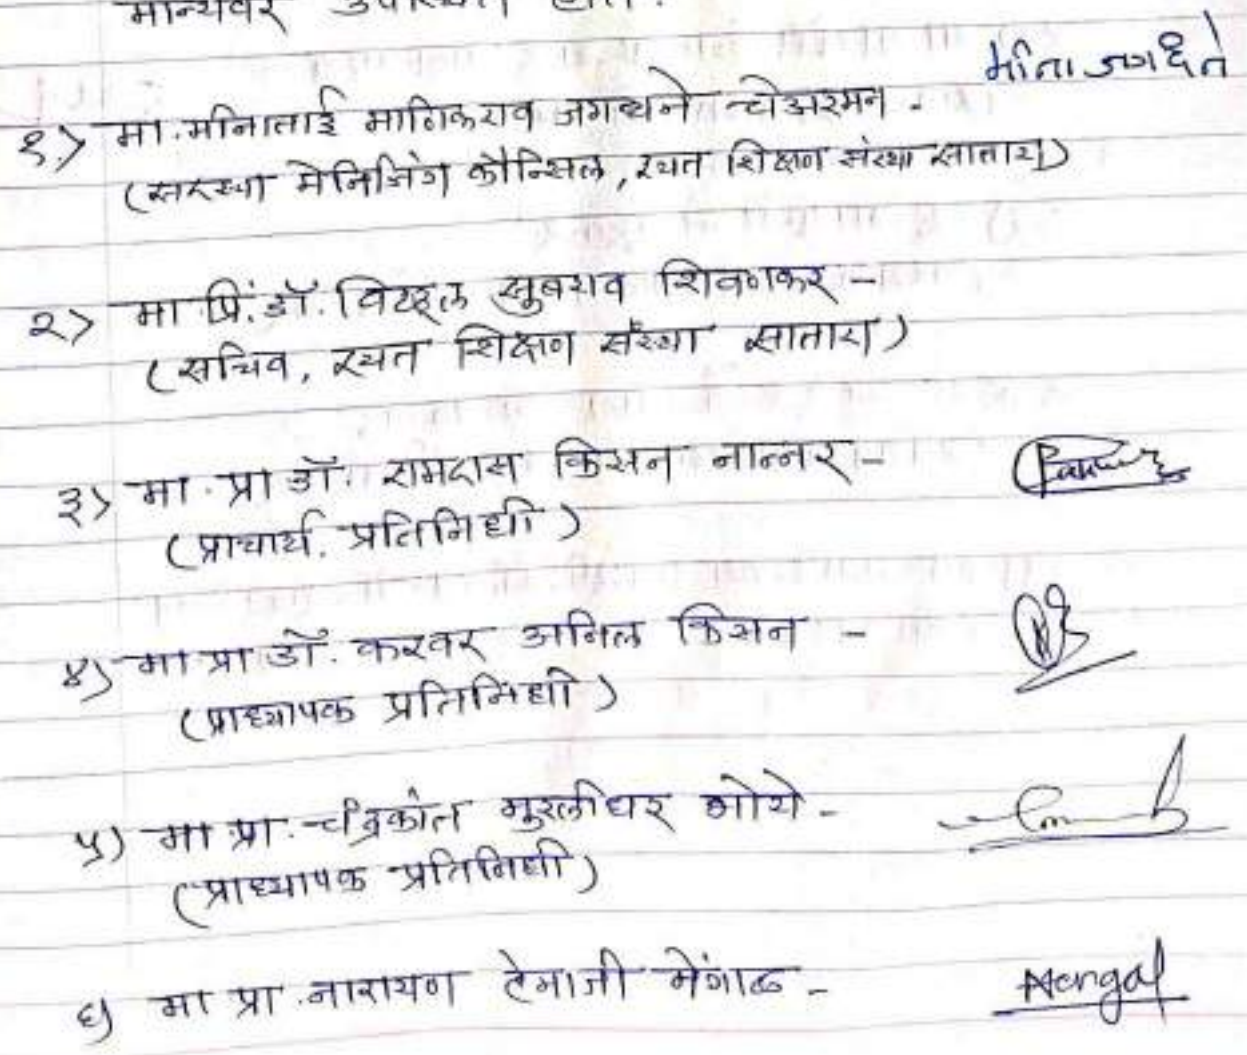 मान्यवर उपस्थित होते.
मीना जगधने
१) मा. मीनाताई माणिकराव जगधने चेअरमन -
(सदस्या मेनिजिंग कौन्सिल, रयत शिक्षण संस्था सातारा)
२) मा. प्रिं. डॉ. विठ्ठल सुबराव शिवणकर -
(सचिव, रयत शिक्षण संस्था सातारा)
३) मा. प्रा डॉ. रामदास किसन नान्नर -
(प्राचार्य. प्रतिनिधी)
४) मा प्रा डॉ. करवर अनिल किसन -
(प्राध्यापक प्रतिनिधी)
५) मा प्रा. चंद्रकांत मुरलीधर भोये -
(प्राध्यापक प्रतिनिधी)
६) मा प्रा. नारायण टेमाजी मेंगाळ - Mengal